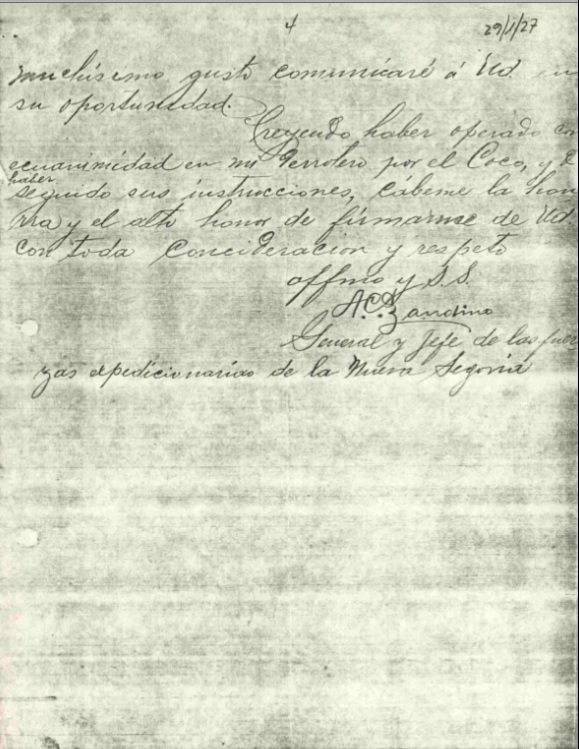 4
29/1/27
muchísimo gusto comunicaré á Ud. en
su oportunidad.
Creyendo haber operado con
ecuanimidad en mi Derrotero por el Coco, y
haber
seguido sus instrucciones, cábeme la hon
rra y el alto honor de firmarme de Ud.
con toda concideracion y respeto
affmo y S.S.
A.C. Sandino
General y Jefe de las fuer
zas expedicionarias de la Nueva Segovia